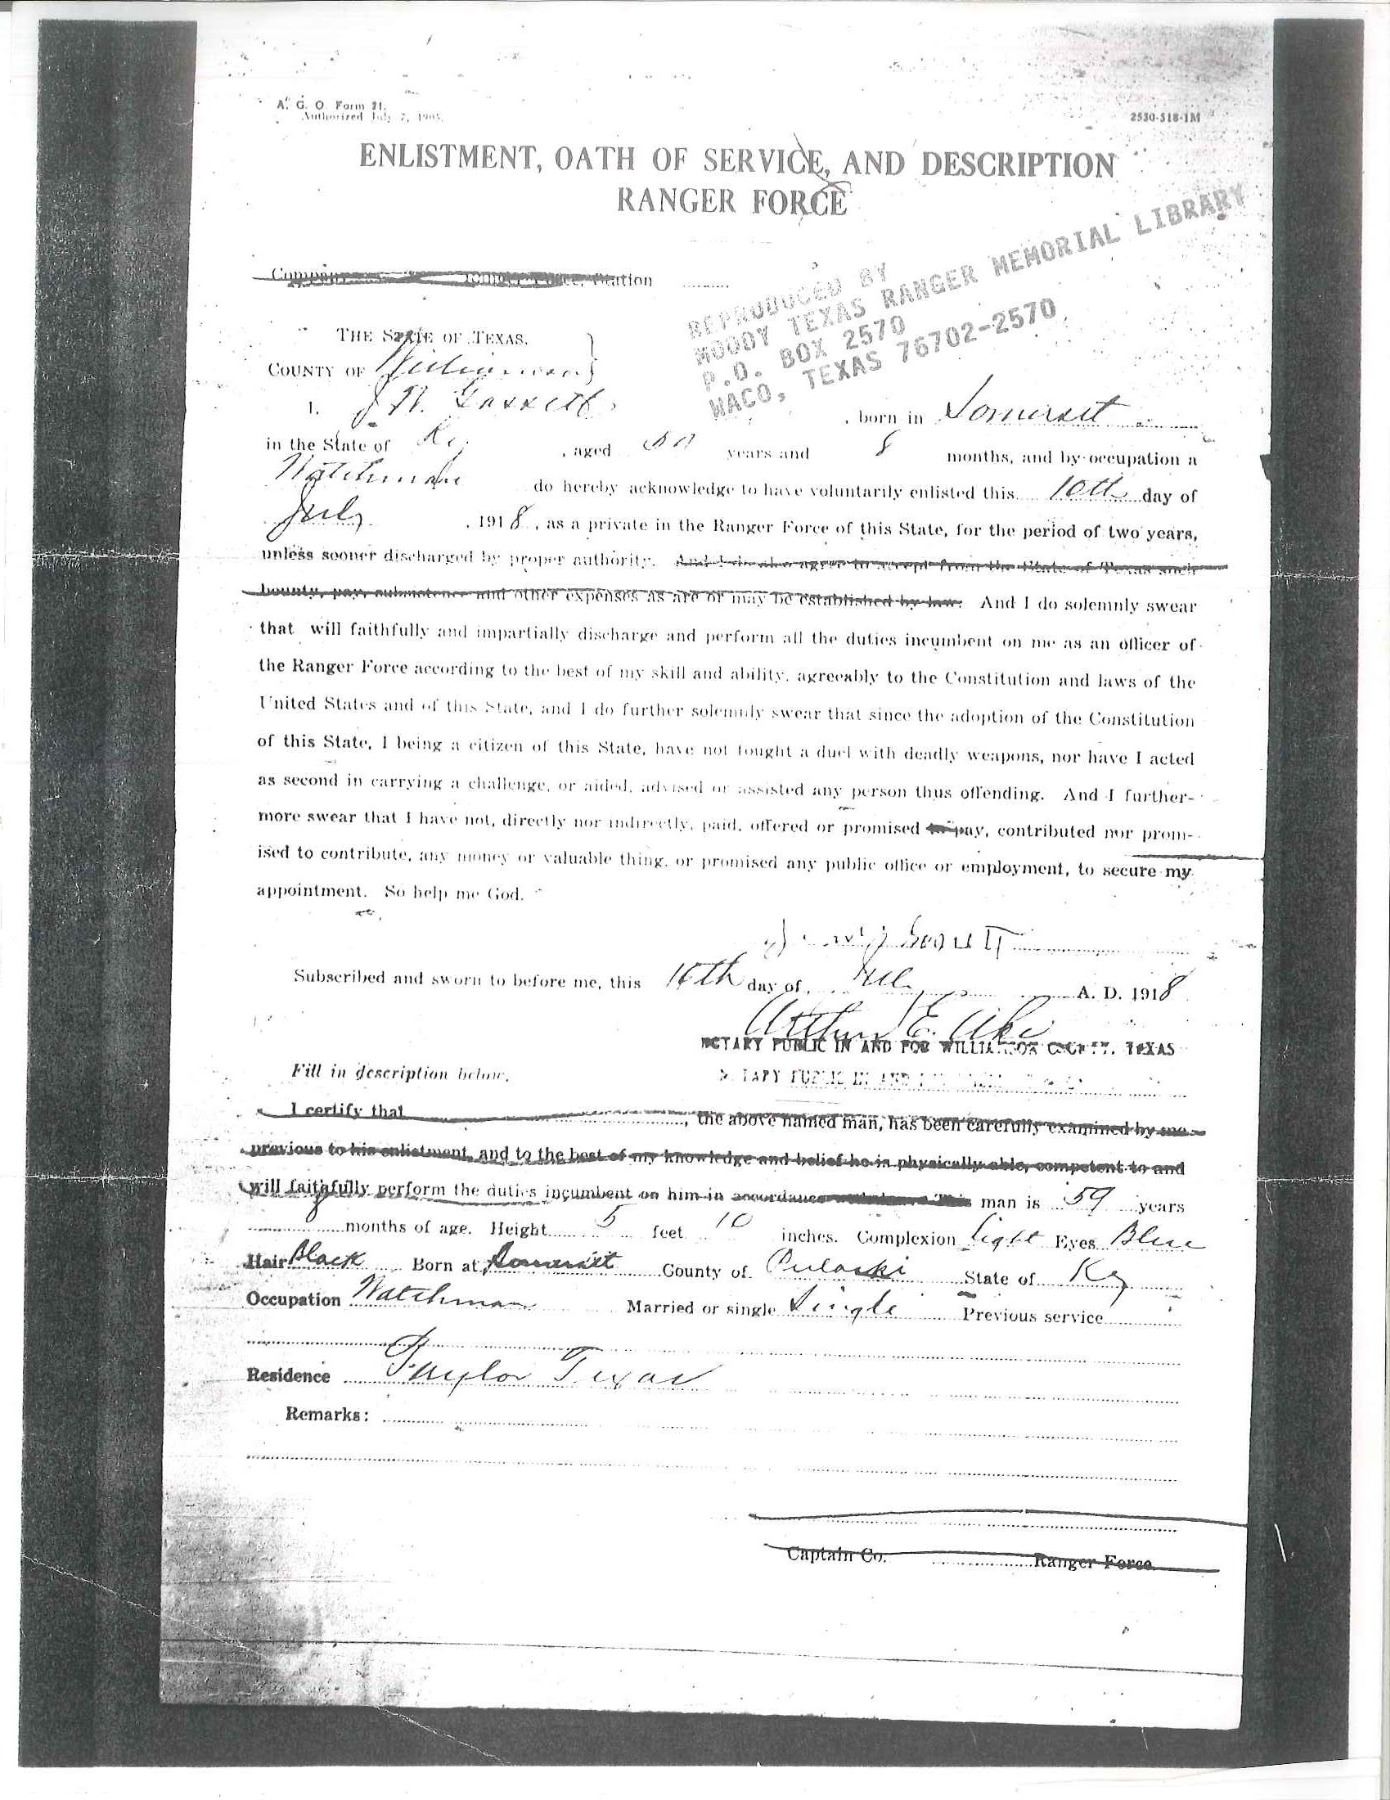 A. G. O. Form 21.
Authorized July 7, 1905.
2530-518-1M
ENLISTMENT, OATH OF SERVICE, AND DESCRIPTION
RANGER FORCE
REPRODUCED BY
MOODY TEXAS RANGER MEMORIAL LIBRARY
P.O. BOX 2570
WACO, TEXAS 76702-2570
Company Ranger Force, Station
THE STATE OF TEXAS,
COUNTY OF Williamson
I, J W. , born in Somerset
in the State of Ky , aged years and 8 months, and by occupation a
Watchman do hereby acknowledge to have voluntarily enlisted this 10th day of
July , 1918, as a private in the Ranger Force of this State, for the period of two years,
unless sooner discharged by proper authority. And I do also agree to accept from the State of Texas such
bounty, pay, subsistence and other expenses as are or may be established by law. And I do solemnly swear
that will faithfully and impartially discharge and perform all the duties incumbent on me as an officer of
the Ranger Force according to the best of my skill and ability, agreeably to the Constitution and laws of the
United States and of this State, and I do further solemnly swear that since the adoption of the Constitution
of this State, I being a citizen of this State, have not fought a duel with deadly weapons, nor have I acted
as second in carrying a challenge, or aided, advised or assisted any person thus offending. And I further-
more swear that I have not, directly nor indirectly, paid, offered or promised to pay, contributed nor prom-
ised to contribute, any money or valuable thing, or promised any public office or employment, to secure my
appointment. So help me God.
Subscribed and sworn to before me, this 10th day of July A. D. 1918
Arthur E.
NOTARY PUBLIC IN AND FOR WILLIAMSON COUNTY, TEXAS
Fill in description below.
NOTARY PUBLIC IN AND
I certify that , the above named man, has been carefully examined by me
previous to his enlistment, and to the best of my knowledge and belief he is physically able, competent to and
will faithfully perform the duties incumbent on him in accordance with law. This man is 59 years
8 months of age. Height 5 feet 10 inches. Complexion Light Eyes Blue
Hair Black Born at Somerset County of Pulaski State of Ky
Occupation Watchman Married or single Single Previous service
Residence Taylor Texas
Remarks:
Captain Co. Ranger Force.